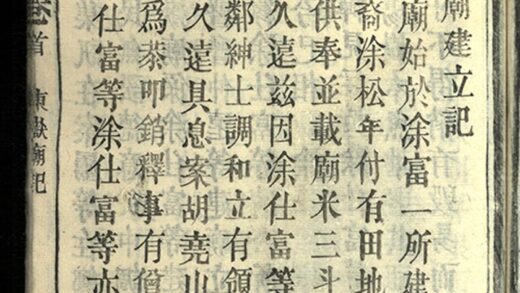 廟建立記
廟始於涂富一所建
裔涂松年付有田地
供奉並載廟米三斗
久遠兹因涂仕富等
鄰紳士調和立有領
久遠具息案胡堯山
爲恭叩銷釋事有僧
仕富等涂仕富等亦
卷首
東嶽廟記